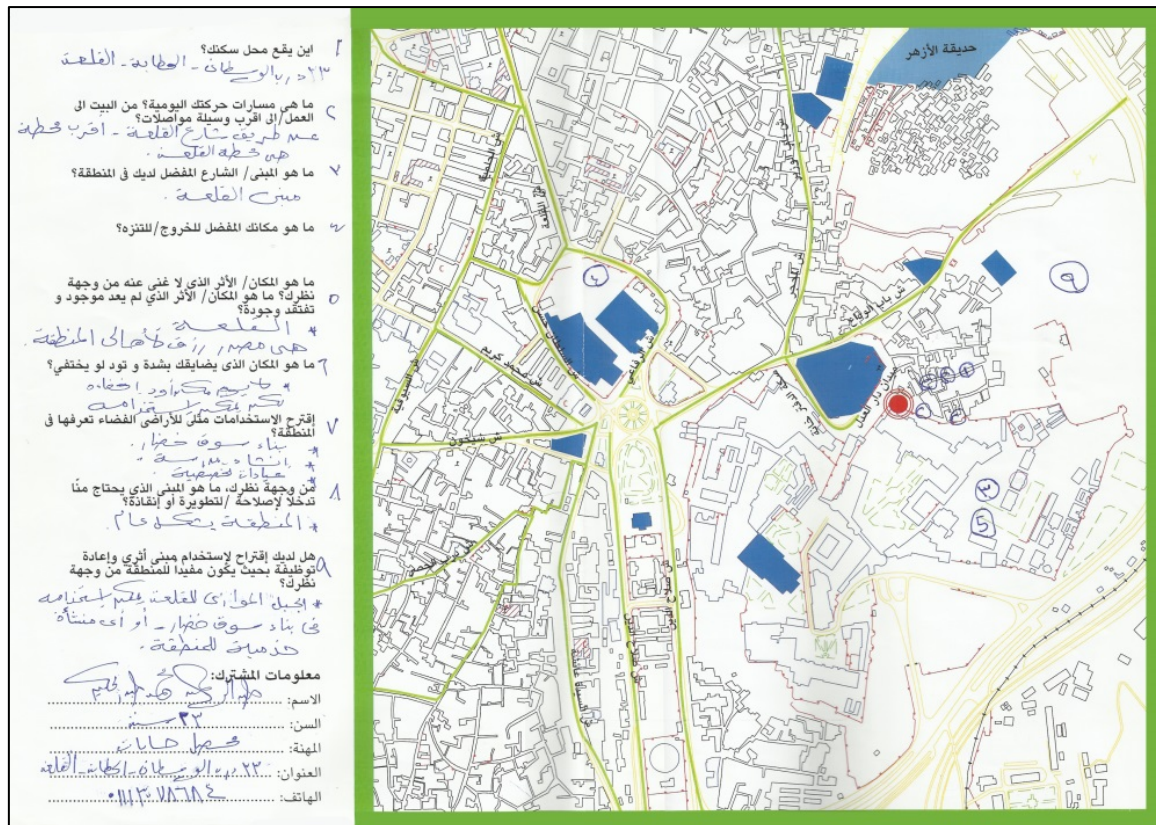 ١ اين يقع محل سكنك؟
٢٣ درب الوسطانى - الحطابة - القلعة
ما هي مسارات حركتك اليومية؟ من البيت الى
٢ العمل/إلى اقرب وسيلة مواصلات؟
عن طريق شارع القلعة - اقرب محطة
هى محطة القلعة.
ما هو المبنى/ الشارع المفضل لديك فى المنطقة؟
مبنى القلعة.
ما هو مكانك المفضل للخروج/للتنزه؟
ما هو المكان/ الأثر الذي لا غنى عنه من وجهة
٥ نظرك؟ ما هو المكان/ الأثر الذي لم يعد موجود و
تفتقد وجودة؟
* القلعة
هى مصدر رزق لأهالى المنطقة.
٦ ما هو المكان الذى يضايقك بشدة و تود لو يختفي؟
اختفاءه
٧ إقترح الاستخدامات مثلى للأراضى الفضاء تعرفها فى
المنطقة؟
* بناء سوق خضار.
* إنشاء مدرسة.
* عيادات تخصصية
٨ من وجهة نظرك، ما هو المبنى الذي يحتاج منّا
تدخلاً لإصلاحة /لتطويرة أو إنقاذة؟
* المنطقة بشكل عام.
هل لديك إقتراح لإستخدام مبنى أثري وإعادة
٩ توظيفة بحيث يكون مفيداً للمنطقة من وجهة
نظرك؟
* الجبل الموازى للقلعة يمكن إستخدامه
فى بناء سوق خضار - أو أى منشأة
خدمية للمنطقة.
معلومات المشترك:
الاسم:
السن: ٢٣ سنة
المهنة: محصل حسابات
العنوان: ٢٣ درب الوسطانى - الحطابة - القلعة
الهاتف:
حديقة الأزهر
ش باب الوزير
ش الحلمية
ش القلعة
ش المحجر
ش باب الوداع
٤
٩
ش السلطان حسن
ش الرفاعي
ش محمد كريم
ش السيوفية
ميدان دار العدل
سكة
ش شيخون
٣
٥
ش صلاح الدين
ش صلاح الدين
ش السيدة عائشة